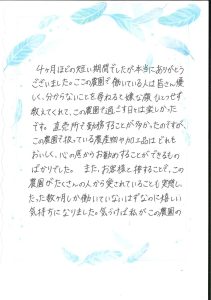 4ヶ月ほどの短い期間でしたが本当にありがとう
ございました。ここの農園で働いている人は皆さん優
しく、分からないことを尋ねると嫌な顔ひとつせず
教えてくれて、この農園で過ごす日々は楽しかった
です。直売所で勤務することが多かったのですが、
この農園で扱っている農産物や加工品はどれも
おいしく、心の底からお勧めすることができるもの
ばかりでした。また、お客様と接することで、この
農園がたくさんの人から愛されていることも実感し
た。数ヶ月しか働いていないはずなのに嬉しい
気持ちになりました。気づけば私がこの農園の